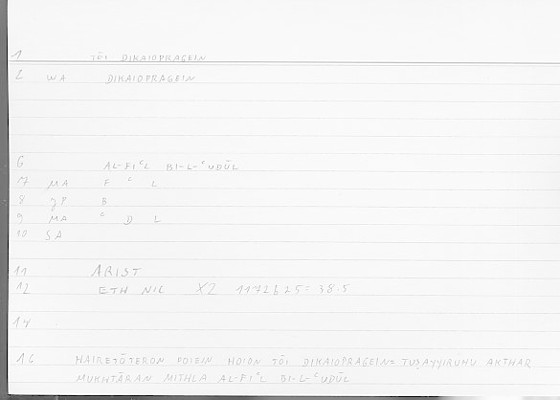 1 TŌI DIKAIOPRAGEIN
2 WA DIKAIOPRAGEIN
6 AL-FIᶜL BI-L-ᶜUDŪL
7 MA F ᶜ L
8 JP B
9 MA ᶜ D L
10 SA
11 ARIST
12 ETH NIC X2 1172b25 = 38.5
14
16 HAIRETŌTERON POIEIN HOION TŌI DIKAIOPRAGEIN = TUṢAYYIRUHU AKTHAR
MUKHTĀRAN MITHLA AL-FIᶜL BI-L-ᶜUDŪL